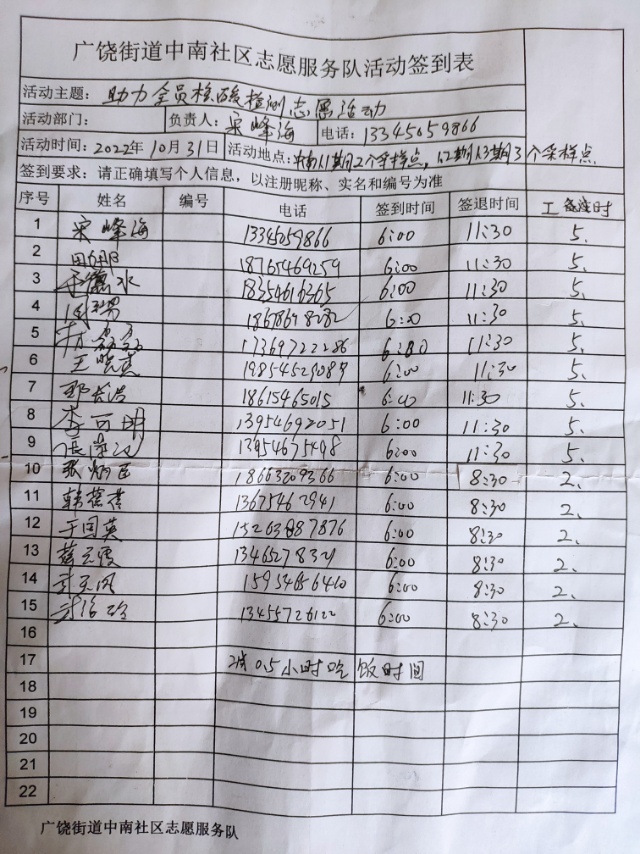 广饶街道中南社区志愿服务队活动签到表
活动主题: 助力全员核酸检测志愿活动
活动部门: 负责人: 宋峰海 电话: 13345659866
活动时间: 2022年10月31日 活动地点: 中南1期2个采样点, 2期3期3个采样点
签到要求: 请正确填写个人信息, 以注册昵称、实名和编号为准
序号 姓名 编号 电话 签到时间 签退时间 工时
1 宋峰海 13345659866 6:00 11:30 5、
2 18765469259 6:00 11:30 5、
3 18354616365 6:00 11:30 5、
4 18678698282 6:00 11:30 5、
5 17369722286 6:00 11:30 5、
6 王晓燕 19854529087 6:00 11:30 5、
7 邓长浩 18615465015 6:00 11:30 5、
8 李可明 13954692051 6:00 11:30 5、
9 13954675498 6:00 11:30 5、
10 张炳臣 18663209366 6:00 8:30 2、
11 韩蓓蓓 13675462941 6:00 8:30 2、
12 于囯英 15263887876 6:00 8:30 2、
13 13465278321 6:00 8:30 2、
14 15954656410 6:00 8:30 2、
15 13455726122 6:00 8:30 2、
16
17 减0.5小时吃饭时间
18
19
20
21
22
广饶街道中南社区志愿服务队